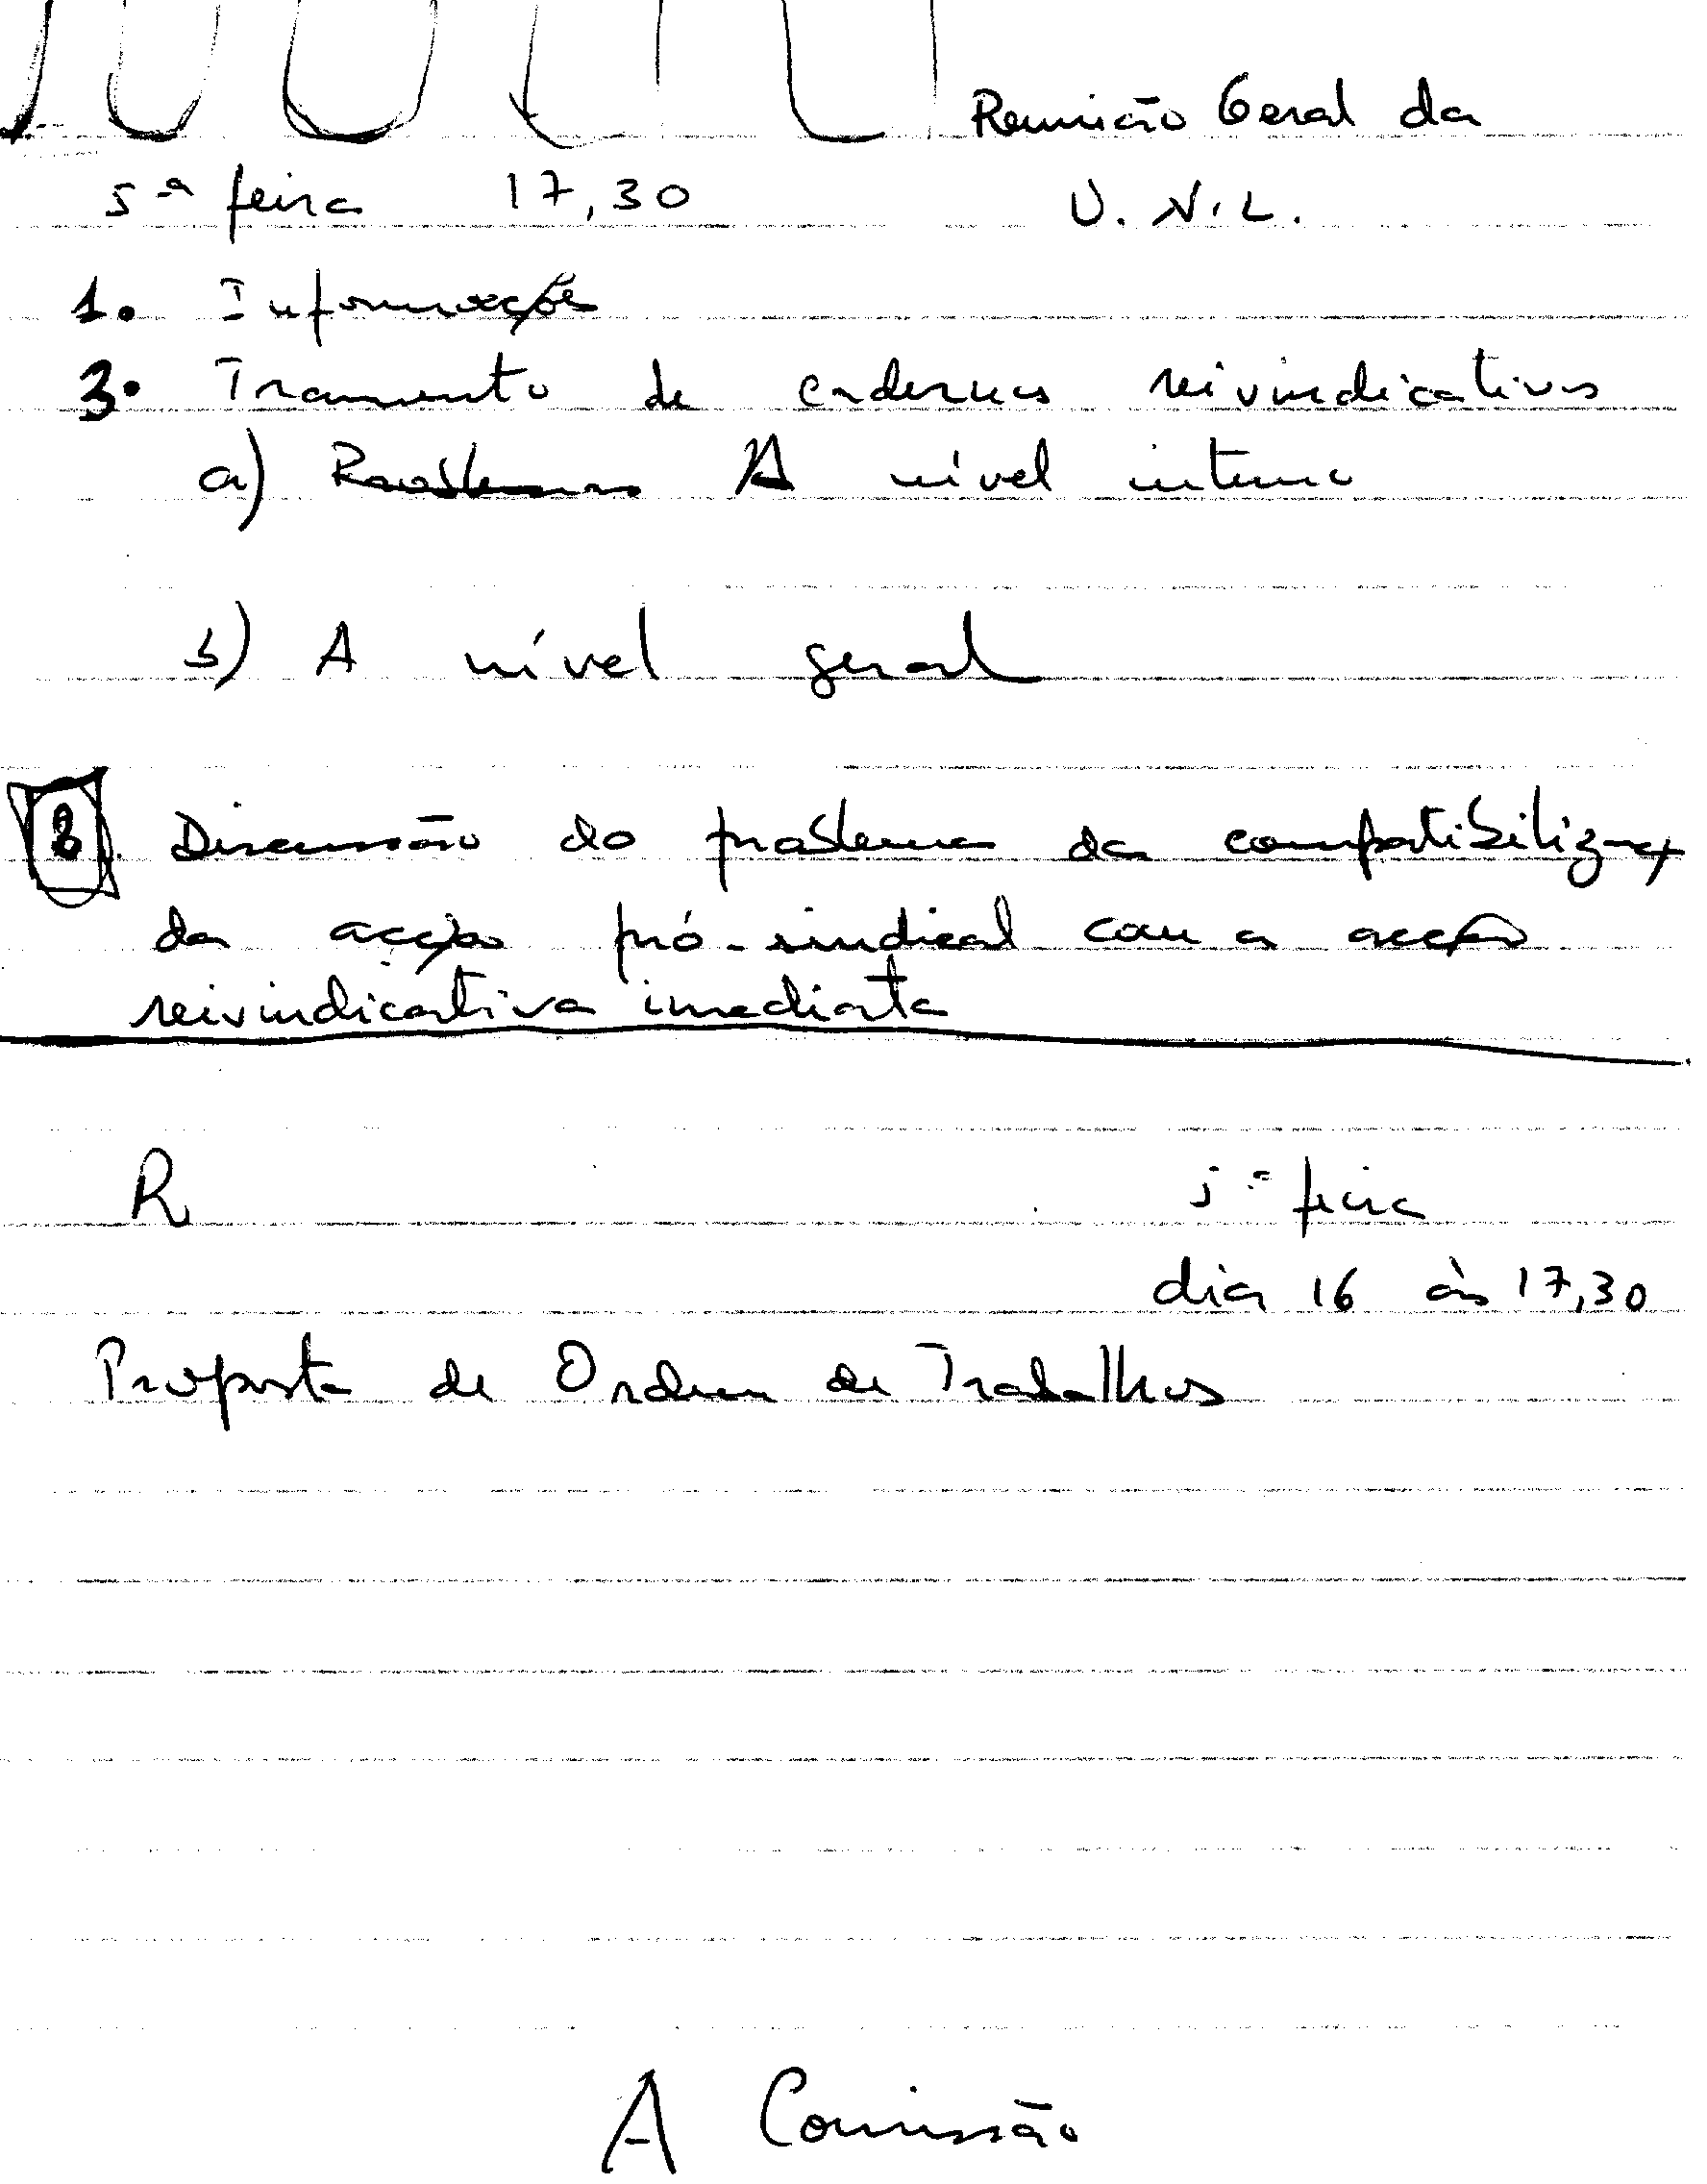 Reunião Geral da
5ª feira 17,30 U.N.L.
1. Informações
3. Tramento de cadernos reivindicativos
a) A nível interno
b) A nível geral
Discussão do problema da compatibilizaç
da acção pró-sindical com a acção
reivindicativa imediata
R 5ª feira
dia 16 às 17,30
Proposta de Ordem de Trabalhos
A Comissão